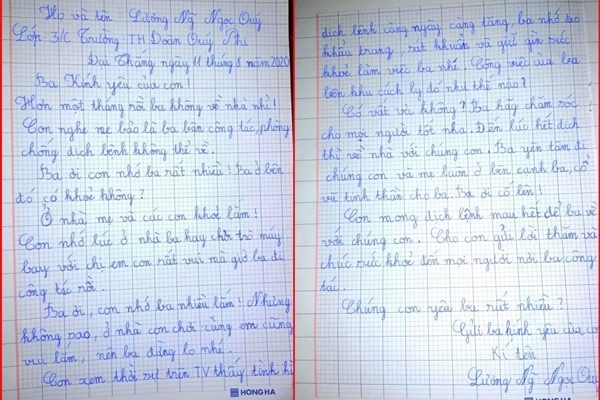 Họ và tên Lương Ng Ngọc Quý
Lớp: 3/C Trường TH Đoàn Quý Phi
Đại Thắng ngày 11 tháng 8 năm 2020
Ba Kính yêu của con!
Hơn một tháng rồi ba không về nhà nhỉ!
Con nghe mẹ bảo là ba bận công tác, phòng
chống dịch bệnh không thể về.
Ba ơi con nhớ ba rất nhiều! Ba ở bên
đó có khoẻ không?
Ở nhà mẹ và các con khoẻ lắm!
Con nhớ lúc ở nhà ba hay chơi trò máy
bay với chị em con rất vui mà giờ ba đi
công tác rồi.
Ba ơi, con nhớ ba nhiều lắm! Nhưng
không sao, ở nhà con chơi cùng em cũng
vui lắm, nên ba đừng lo nhé.
Con xem thời sự trên TV thấy tình hì
HONG HA
dịch bệnh càng ngày càng tăng, ba nhớ đeo
khẩu trang, sát khuẩn và giữ gìn sức
khoẻ làm việc ba nhé. Công việc của ba
bên khu cách ly đó như thế nào?
Có vất vả không? Ba hãy chăm sóc
cho mọi người tốt nha. Đến lúc hết dịch
thì về nhà với chúng con. Ba yên tâm đi
chúng con và mẹ luôn ở bên cạnh ba, cổ
vũ tinh thần cho ba. Ba ơi cố lên!
Con mong dịch bệnh mau hết để ba về
với chúng con. Cho con gửi lời thăm và
chúc sức khoẻ đến mọi người nơi ba công
tác.
Chúng con yêu ba rất nhiều?
Gửi ba kính yêu của co
Kí tên
Lương Ng Ngọc Quý
HONG HA